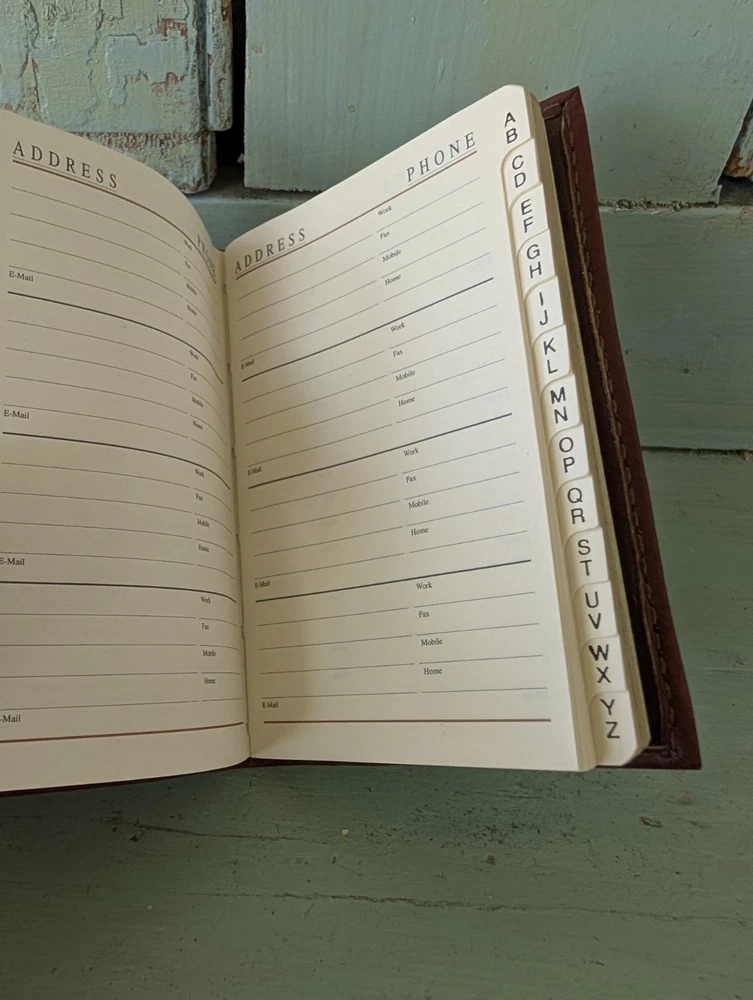 ADDRESS
PHONE
Work
Fax
Mobile
E-Mail
Home
Work
Fax
Mobile
E-Mail
Home
Work
Fax
Mobile
E-Mail
Home
Work
Fax
Mobile
Home
E-Mail
ADDRESS
PHONE
Work
Fax
Mobile
Home
E-Mail
Work
Fax
Mobile
Home
E-Mail
Work
Fax
Mobile
Home
E-Mail
Work
Fax
Mobile
Home
E-Mail
A
B
C
D
E
F
G
H
I
J
K
L
M
N
O
P
Q
R
S
T
U
V
W
X
Y
Z